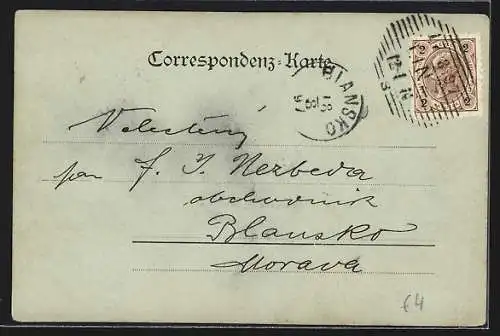 Correspondenz-Karte.
BLANSKO
18
8
97
2 2
2 2
Velectěný
pan F. J. Nezbeda
obchodník
Blansko
Morava
£4